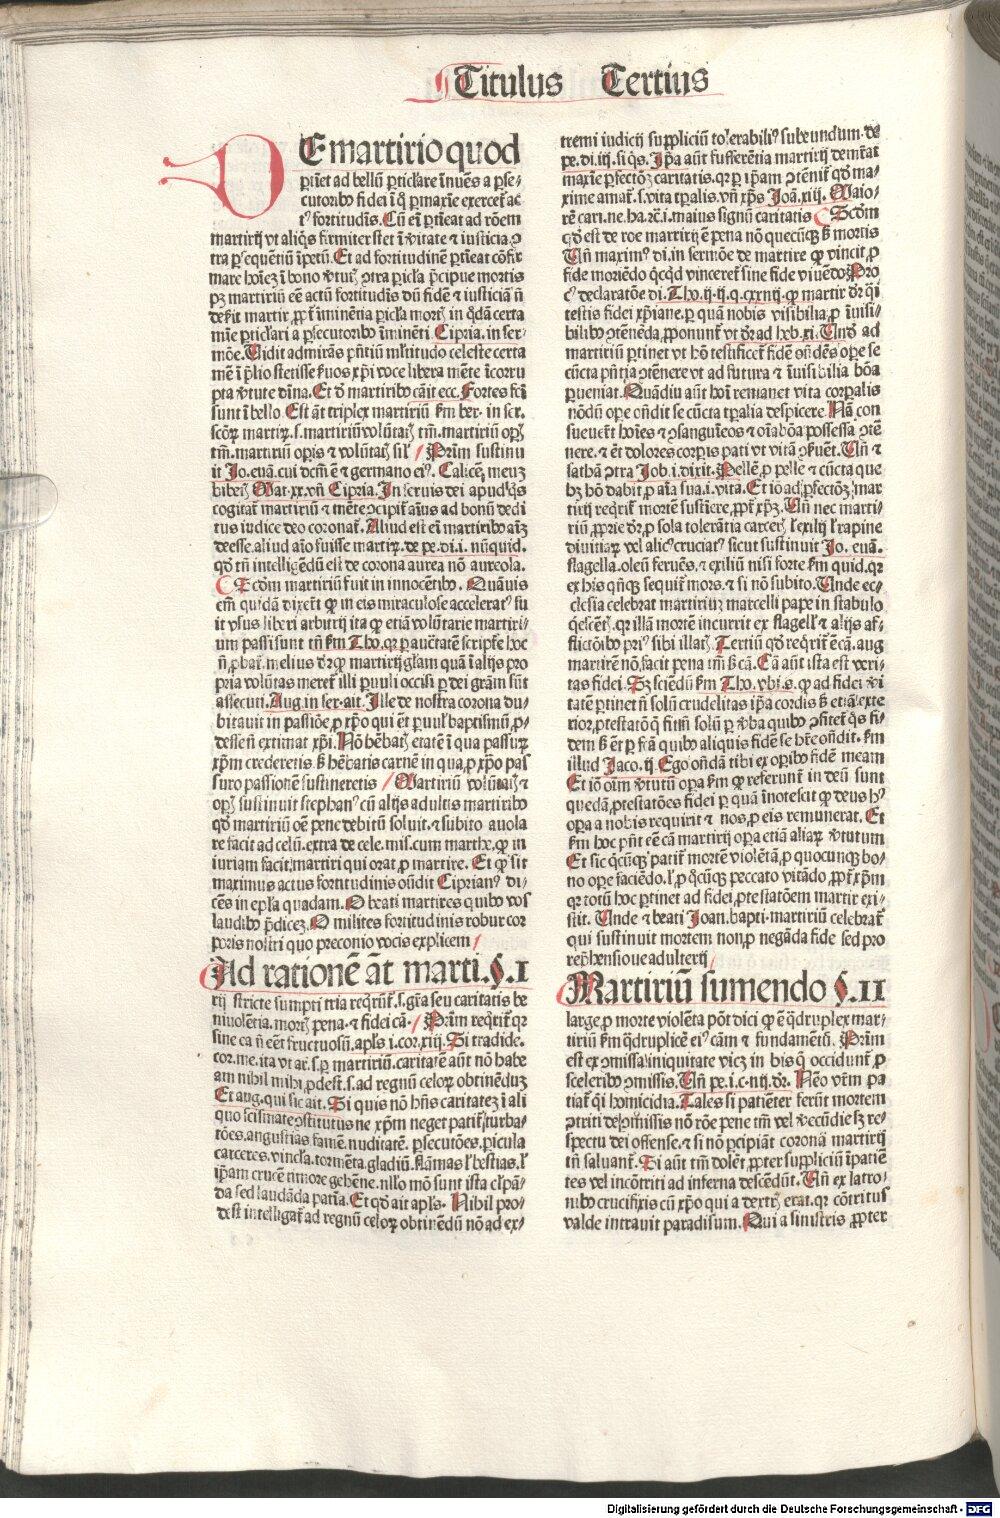 Titulus Tertius
DE martirio quod
ꝑtinet ad bellū ꝑticlare īnuēs a ꝑse/
cutoribꝰ fidei ī q̄ ꝑmaxīe exercet᷑ ac
tꝰ fortitudīs. Cū eī ꝑtīeat ad rōem
martirij vt aliq̄s firmiter stet ī v̄itate ⁊ iusticia ꝯ
tra ꝑsequētiū īpetū. Et ad fortitudinē ꝑtīeat cōfir
mare hoīez ī bono v̄tuꝭ ꝯtra picła p̄cipue mortis
pꝫ martiriū eē actū fortitudīs dū fidē ⁊ iusticiā nō
mōe. Vidit admirās p̄ntiū mltitudo celeste certa
mē ī p̄lio stetisse suos xp̄i voce libera mēte īcorru
pta v̄tute dīna. Et d̄ martiribꝰ cāit ecc. Fortes fcī
sunt ī bello. Est āt triplex martiriū
tm̄. martiriū oꝑis ⁊ volūtaꝭ sił / Prīm sustinu
it Jo. euā. cui dcm̄ ē ⁊ germano eiꝰ. Calicē meuꝫ
bibetꝭ Mat. xx. vn̄ Cipria. In seruis dei apud q̄s
cogitat᷑ martiriū ⁊ mēte ꝯcipit᷑ aīus ad bonū dedi
tus iudice deo coronat᷑. Aliud est eī martiribꝰ aīꝫ
deesse. aliud aīo fuisse martiꝝ. de pe. di. i. nūquid.
qd̄ tn̄ intelligēdū est de corona aurea nō aureola.
Secdm martiriū fuit in innocētibꝰ. Quāuis
em̄ quidā dixert̄ ꝙ in eis miraculose acceleratꝰ fu
it vsus liberi arbitrij ita ꝙ etiā volūtarie martiri/
um passi sunt tn̄ fm̄ Tho. qꝛ ꝑ auctatē scripte hoc
nō ꝓbat᷑. melius dr̄ ꝙ martirij głam quā ī alijs pro
pria volūtas meret᷑ illi ꝑuuli occisi ꝑ dei grām sūt
assecuti. Aug. in ser. ait. Ille de nostra corona du/
bitauit in passiōe ꝓ xp̄o qui ēt ꝑuuł baptismū ꝓ/
desse nō extimat xp̄i. Nō hēbatꝭ etatē ī qua passuꝝ
xp̄m crederetis s̄ hēbatis carnē in qua ꝓ xp̄o pas
suro passionē sustineretis / Martiriū volūtaꝭ ⁊
oꝑꝭ sustinuit stephanꝰ cū alijs adultis martiribꝰ
qd̄ martiriū oē pene debitū soluit. ⁊ subito auola
re facit ad celū. extra de cele. mis. cum marthe. ꝙ in
iuriam facit martiri qui orat ꝓ martire. Et ꝙ sit
maximus actus fortitudinis oñdit Ciprianꝰ di/
cēs in epła quadam. O beati martires quibꝰ vos
laudibꝰ p̄dicez. O milites fortitudinis robur cor
poris nostri quo preconio vocis explicem /
Ad rationē āt marti. §. I
rij stricte sumpti tria reqr̄unt᷑. s. gr̄a seu caritatis be
niuolētia. mortꝭ pena. ⁊ fidei cā. / Prīm reqrit᷑ qꝛ
sine ea nō eēt fructuosū. apłs i. cor. xiij. Si tradide.
cor. me. ita vt ar. s. ꝑ martiriū. caritatē aūt nō habe
am nihil mihi ꝓdest. s. ad regnū celoꝝ obtinēduꝫ
Et aug. qui sic ait. Si quis nō hn̄s caritatez ī ali
quo scismate ꝯstitutus ne xp̄m neget patit᷑ turba/
tōes. angustias famē. nuditatē. ꝑsecutōes. ꝑicula
carceres. vincła. tormēta. gladiū. flāmas ł bestias. ł
ip̄am crucē timore gehēne. nllo mō sunt ista clpā/
da sed laudāda patīa. Et qd̄ ait apłs. Nihil pro/
dest intelligat᷑ ad regnū celoꝝ obtinēdū nō ad ex/
tremi iudicij suppliciū tolerabiliꝰ subeundum. de
pe. di. iij. si qs. Ip̄a aūt sufferētia martirij demr̄at
maxīe ꝑfectōꝫ caritatis. qꝛ ꝑ ip̄am ꝯtēnit᷑ qd̄ ma/
xime amat᷑. s. vita tp̄alis. vn̄ xp̄s Joā. xiij. Maio/
rē cari. ne. ha. rc̄. i. maius signū caritatis Scdm
qd̄ est de rōe martirij ē pena nō quecūqꝫ s̄ mortis
Vn̄ maximꝰ di. in sermōe de martire ꝙ vincit ꝓ
fide moriēdo qcqd vinceret᷑ sine fide viuēdo Pro
cꝰ declaratōe di. Tho. ij. ij. q. cxxiiij. ꝙ martir dr̄ qi
testis fidei xp̄iane. ꝑ quā nobis visibilia ꝓ īuisi/
bilibꝰ ꝯtēnēda ꝓponunt᷑ vt dr̄ ad heb. xi. Vnd̄ ad
martiriū ꝑtinet vt hō testificet᷑ fidē oñdēs oꝑe se
cūcta p̄ntia ꝯtēnere vt ad futura ⁊ īuisibilia bōa
ꝑueniat. Quādiu aūt hoī remanet vita corꝑalis
nōdū oꝑe oñdit se cūcta tp̄alia despicere. Nā con
sueuert̄ hoīes ⁊ ꝯsanguīeos ⁊ oīa bōa possessa ꝯtē
nere. ⁊ ēt dolores corꝑis pati vt vitā ꝯseruēt. Vn̄ ⁊
sathā ꝯtra Job. i. dixit. Pellē ꝓ pelle ⁊ cūcta que
hꝫ hō dabit ꝓ aīa sua. i. vita. Et iō ad ꝑfectōꝫ mar
tirij reqrit᷑ mortē sustīere ꝓpt᷑ xp̄ꝫ. Vn̄ nec marti/
riū ꝓprie dr̄ ꝓ sola tolerātia carceꝭ ł exilij ł rapine
diuitiaꝝ vel alicꝰ cruciatꝰ sicut sustinuit Jo. euā.
flagella. oleū feruēs. ⁊ exiliū nisi forte fm̄ quid. qꝛ
ex his qn̄qꝫ sequit᷑ mors. ⁊ si nō subito. Vnde ec/
clesia celebrat martiriū marcelli pape in stabulo
qescētꝭ. qꝛ illā mortē incurrit ex flagell᷑ ⁊ alijs af/
flictōibꝰ priꝰ sibi illatꝭ. Tertiū qd̄ reqrit᷑ ē cā. aug
martirē nō facit pena im̄ s̄ cā. Cā aūt ista est veri/
tas fidei. Sꝫ sciēdū fm̄ Tho. vbi. s. ꝙ ad fidei v̄i
tatē ꝑtinet nō solū crudelitas ip̄a cordis s̄ etiā exte
rior ꝓtestatō
dem s̄ ēt ꝑ fcā quibꝰ aliquis fidē se hr̄e oñdit. fm̄
illud Jaco. ij. Ego oñdā tibi ex oꝑibꝰ fidē meam
Et iō oīm v̄tutū oꝑa fm̄ ꝙ referunt᷑ in deū sunt
quedā ꝓtestatōes fidei ꝑ quā īnotescit ꝙ deus hꝰ
oꝑa a nobis requirit ⁊ nos ꝓ eis remunerat. Et
fm̄ hoc pn̄t eē cā martirij oꝑa etiā aliaꝝ v̄tutum
Et sic qcūqꝫ patit᷑ mortē violētā ꝓ quocunqꝫ bo/
no oꝑe faciēdo. ł ꝓ qcūqꝫ peccato vitādo ꝓpt᷑ xp̄m
qꝛ totū hoc ꝑtinet ad fidei ꝓtestatōem martir exi/
stit. Vnde ⁊ beati Joan. bapti. martiriū celebrat᷑
qui sustinuit mortem non ꝓ negāda fide sed pro
reprehensiōe adulterij /
Martiriū sumendo §. II
large ꝓ morte violēta pōt dici ꝙ ē qdruplex mar/
tiriū fm̄ qdruplicē eiꝰ cām ⁊ fundamētū. Prīm
est ex ꝯmissa iniquitate vicꝫ in his q̄ occidunt᷑ ꝓ
sceleribꝰ ꝯmissis. Vn̄ pe. i. c. iiij. dr̄. Nēo vr̄m pa
tiat᷑ qi homicidia. Tales si patiēter ferūt mortem
ꝯtriti de ꝯmissis nō rōe pene tm̄ vel v̄ecūdie sꝫ re/
spectu dei offense. ⁊ si nō ꝑcipiāt coronā martirij
tn̄ saluant᷑. Si aūt tm̄ dolēt ꝓpter suppliciū īpatiē
tes vel incōtriti ad inferna descēdūt. Vn̄ ex latro/
nibꝰ crucifixis cū xp̄o qui a dextrꝭ erat. qꝛ cōtritus
valde intrauit paradisum. Qui a sinistris ꝓpter
Digitalisierung gefördert durch die Deutsche Forschungsgemeinschaft - DFG